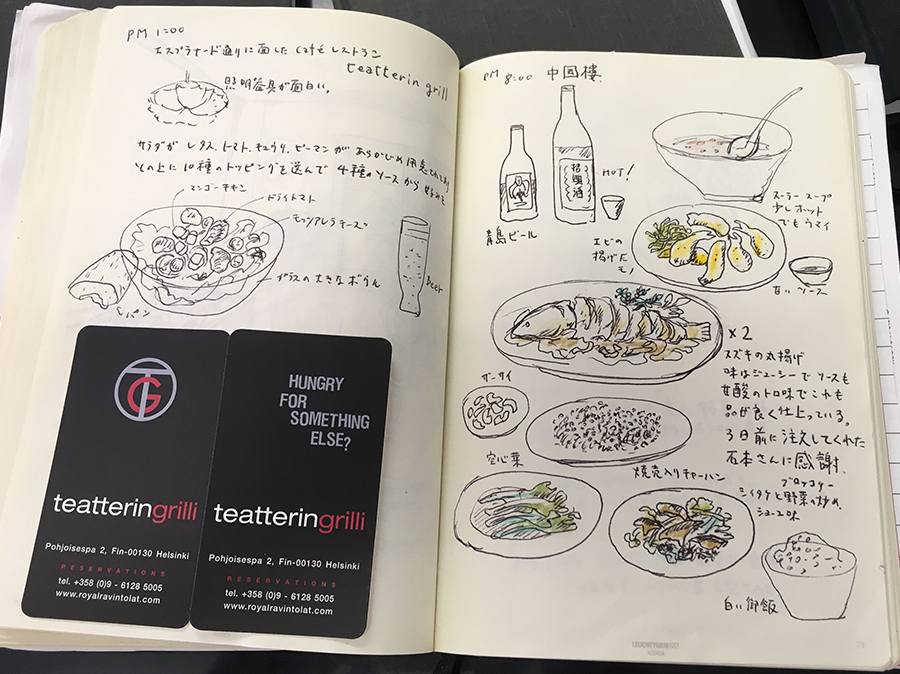 PM 1:00
エスプラナード通りに面した cafeレストラン
teatterin grill
照明器具が面白い。
サラダが レタス、トマト、キュウリ、ピーマンが あらかじめ用意されており
その上に10種のトッピングを選んで 4種のソースから好みを
マンゴーチキン
ドライトマト
モッツアレラチーズ
ガラスの大きなボウル
パン
beer
TG
teatteringrilli
Pohjoisespa 2, Fin-00130 Helsinki
RESERVATIONS
tel. +358 (0)9 - 6128 5005
www.royalravintolat.com
HUNGRY
FOR
SOMETHING
ELSE?
teatteringrilli
Pohjoisespa 2, Fin-00130 Helsinki
RESERVATIONS
tel. +358 (0)9 - 6128 5005
www.royalravintolat.com
PM 8:00 中国樓
青島ビール
紹興酒
HOT!
スーラースープ
少しホット
でもウマイ
エビの
揚げた
モノ
甘いソース
×2
スズキの丸揚げ
味はジューシーでソースも
甘酸のトロ味でこれも
品が良く仕上っている。
3日前に注文してくれた
石本さんに感謝、
ザーサイ
空心菜
焼売入りチャーハン
ブロッコリー
シイタケと野菜の炒め、
白い御飯
LEUCHTTURM1917